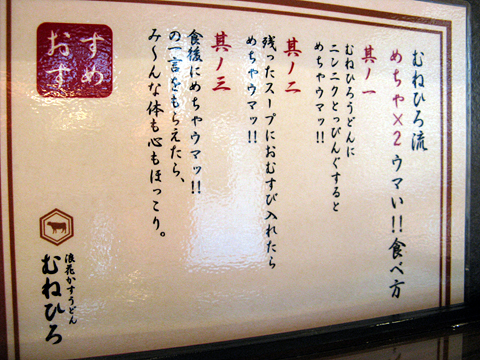 むねひろ流
めちゃ×2ウマい!!食べ方
其ノ一
むねひろうどんに
ニンニクとっぴんぐすると
めちゃウマッ!!
其ノ二
残ったスープにおむすび入れたら
めちゃウマッ!!
其ノ三
食後にめちゃウマッ!!
の一言をもらえたら、
み〜んな体も心もほっこり。
おすすめ
浪花かすうどん
むねひろ